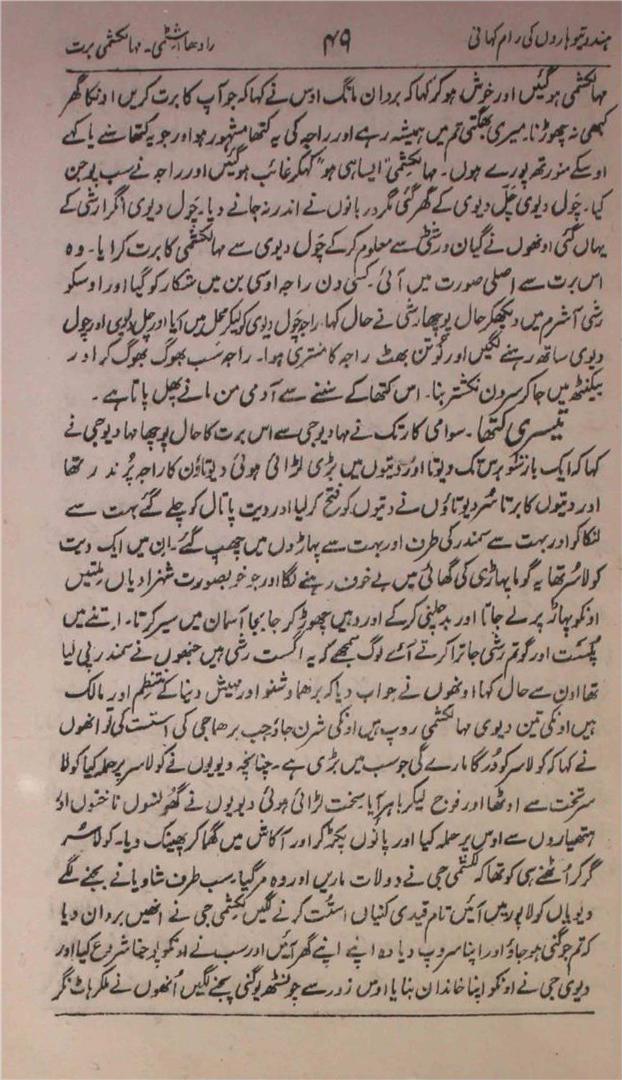 ہندو تیوہاروں کی رام کہانی ۴۹ رادھا اشٹمی۔ مہالکشمی برت
مہالکشمی ہو گئیں اور خوش ہو کر کہا کہ بردان مانگ اوس نے کہا کہ جو آپ کا برت کریں اونکا گھر
کبھی نہ چھوڑنا۔ میری بھگتی تم میں ہمیشہ رہے اور راجہ کی یہ کتھا مشہور ہو اور جو یہ کتھا سنے یا کہے
اوسکے منورتھ پورے ہوں۔ مہالکشمی "ایسا ہی ہو" کہکر غائب ہو گئیں اور راجہ نے سب پوجن
کیا۔ چول دیوی چل دیوی کے گھر گئی مگر دربانوں نے اندر نہ جانے دیا۔ چول دیوی انگرا رشی کے
یہاں گئی اونھوں نے گیان درشٹی سے معلوم کرکے چول دیوی سے مہالکشمی کا برت کرایا۔ وہ
اس برت سے اصلی صورت میں آئی۔ کسی دن راجہ اوسی بن میں شکار کو گیا اور اوسکو
رشی آشرم میں دیکھکر حال پوچھا رشی نے حال کہا۔ راجہ چول دیوی کو لیکر محل میں آیا اور چل دیوی اور چول
دیوی ساتھ رہنے لگیں اور گوتن بھٹ راجہ کا منتری ہوا۔ راجہ سب بھوگ بھوگ کر اور
بیکنٹھ میں جا کر سرون نکشتر بنا۔ اس کتھا کے سننے سے آدمی من مانے پھل پاتا ہے۔
تیسری کتھا۔ سوامی کارتک نے مہادیوجی سے اس برت کا حال پوچھا مہادیوجی نے
کہا کہ ایک بار سَو برس تک دیوتا اور دیتوں میں بڑی لڑائی ہوئی دیوتاؤں کا راجہ پُرندر تھا
اور دیتوں کا برتاسُر دیوتاؤں نے دیتوں کو فتح کر لیا اور دیت پاتال کو چلے گئے بہت سے
لنکا کو اور بہت سے سمندر کی طرف اور بہت سے پہاڑوں میں چھپ گئے۔ ان میں ایک دیت
کولاسُر تھا یہ گوما پہاڑی کی گھاٹی میں بے خوف رہنے لگا اور جو خوبصورت شہزادیاں ملتیں
اونکو پہاڑ پر لے جاتا اور بدچلنی کرکے اور وہیں چھوڑ کر جا بجا آسمان میں سیر کرتا۔ اتنے میں
پُلست اور گوتم رشی جاترا کرتے آئے لوگ سمجھے کہ یہ اگست رشی ہیں جنھوں نے سمندر پی لیا
تھا اون سے حال کہا اونھوں نے جواب دیا کہ برھما وشنو اور مہیش دنیا کے منتظم اور مالک
ہیں اونکی تین دیوی مہالکشمی روپ ہیں اونکی شرن جاؤ جب برھما جی کی استت کی تو انھوں
نے کہا کہ کولاسر کو دُرگا مارے گی جو سب میں بڑی ہے۔ چنانچہ دیویوں نے کولاسر پر حملہ کیا کولا
سر تخت سے اوٹھا اور فوج لیکر باہر آیا۔ سخت لڑائی ہوئی دیویوں نے گھونسوں ناخنوں اور
ہتھیاروں سے اوس پر حملہ کیا اور پانوں پکڑ کر اور آکاش میں گھما کر پھینک دیا۔ کولاسُر
گر کر اُٹھنے ہی کو تھا کہ لکشمی جی نے دو لات ماریں اور وہ مر گیا۔ سب طرف شادیانے بجنے لگے
دیویاں کولاپور میں آئیں تمام قیدی کنیاں استُت کرنے لگیں لکشمی جی نے انھیں بردان دیا
کہ تم جوگنی ہو جاؤ اور اپنا سروپ دیا وہ اپنے اپنے گھر آئیں اور سب نے اونکو پوجنا شروع کیا اور
دیوی جی نے اونکو اپنا خاندان بنایا اوس روز سے چونسٹھ یوگنی پُجنے لگیں اُنھوں نے ملکر ہاٹ نگر